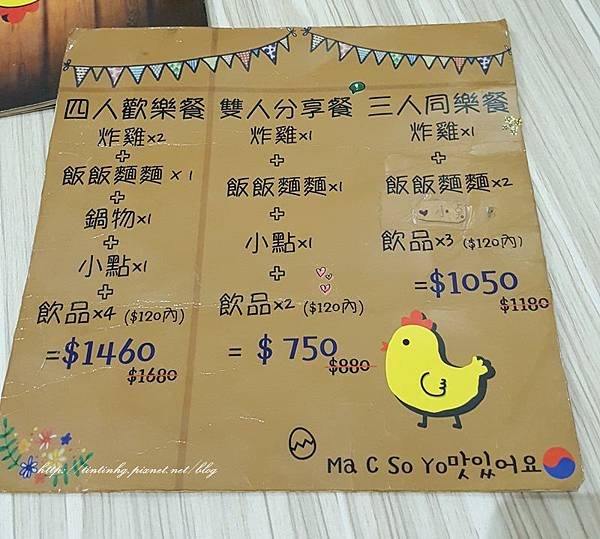 四人歡樂餐
炸雞x2
+
飯飯麵麵 x1
+
鍋物x1
+
小點x1
+
飲品x4 ($120內)
=$1460
$1680
雙人分享餐
炸雞x1
+
飯飯麵麵x1
+
小點x1
+
飲品x2 ($120內)
= $750
$880
三人同樂餐
炸雞x1
+
飯飯麵麵x2
飲品x3 ($120內)
=$1050
$1180
Ma C So Yo맛있어요
http://tintinhg.pixnet.net/blog